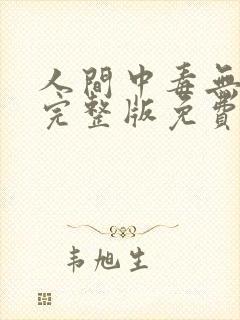 人間中毒無
完整版免費
韦旭生